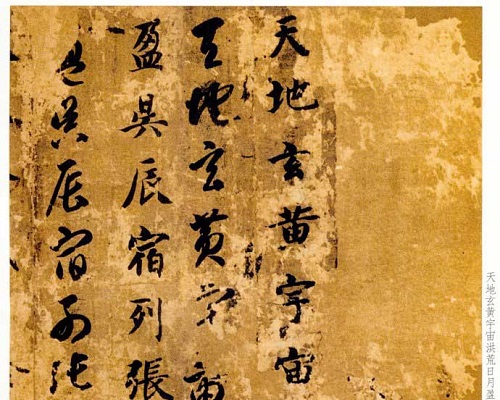 天地玄黄宇宙
天地玄黄宇宙
盈昃辰宿列張
昃辰宿列張
天地玄黃宇宙洪荒日月盈